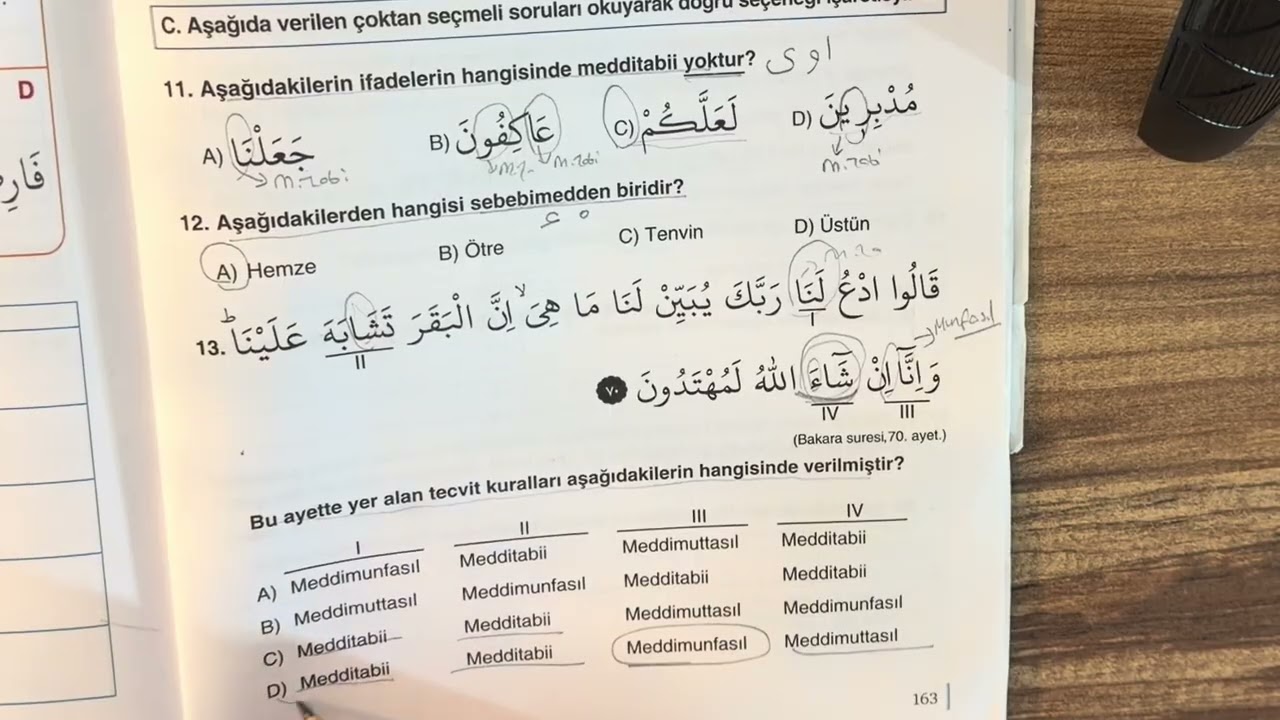 C. Aşağıda verilen çoktan seçmeli soruları okuyarak doğru seçeneği
D
11. Aşağıdakilerin ifadelerin hangisinde medditabii yoktur? ا و ى
A) جَعَلْنَا B) عَاكِفُونَ C) لَعَلَّكُمْ D) مُدْبِرِينَ
m.tabi m.tabi m.tabi
12. Aşağıdakilerden hangisi sebebimedden biridir?
A) Hemze B) Ötre C) Tenvin D) Üstün
13. قَالُوا ادْعُ لَنَا رَبَّكَ يُبَيِّنْ لَنَا مَا هِىَۙ اِنَّ الْبَقَرَ تَشَابَهَ عَلَيْنَاۜ
I II
Munfasıl
وَاِنَّٓا اِنْ شَٓاءَ اللّٰهُ لَمُهْتَدُونَ ٧٠
IV III
(Bakara suresi,70. ayet.)
Bu ayette yer alan tecvit kuralları aşağıdakilerin hangisinde verilmiştir?
I II III IV
A) Meddimunfasıl Medditabii Meddimuttasıl Medditabii
B) Meddimuttasıl Meddimunfasıl Medditabii Medditabii
C) Medditabii Medditabii Meddimuttasıl Meddimunfasıl
D) Medditabii Medditabii Meddimunfasıl Meddimuttasıl
163